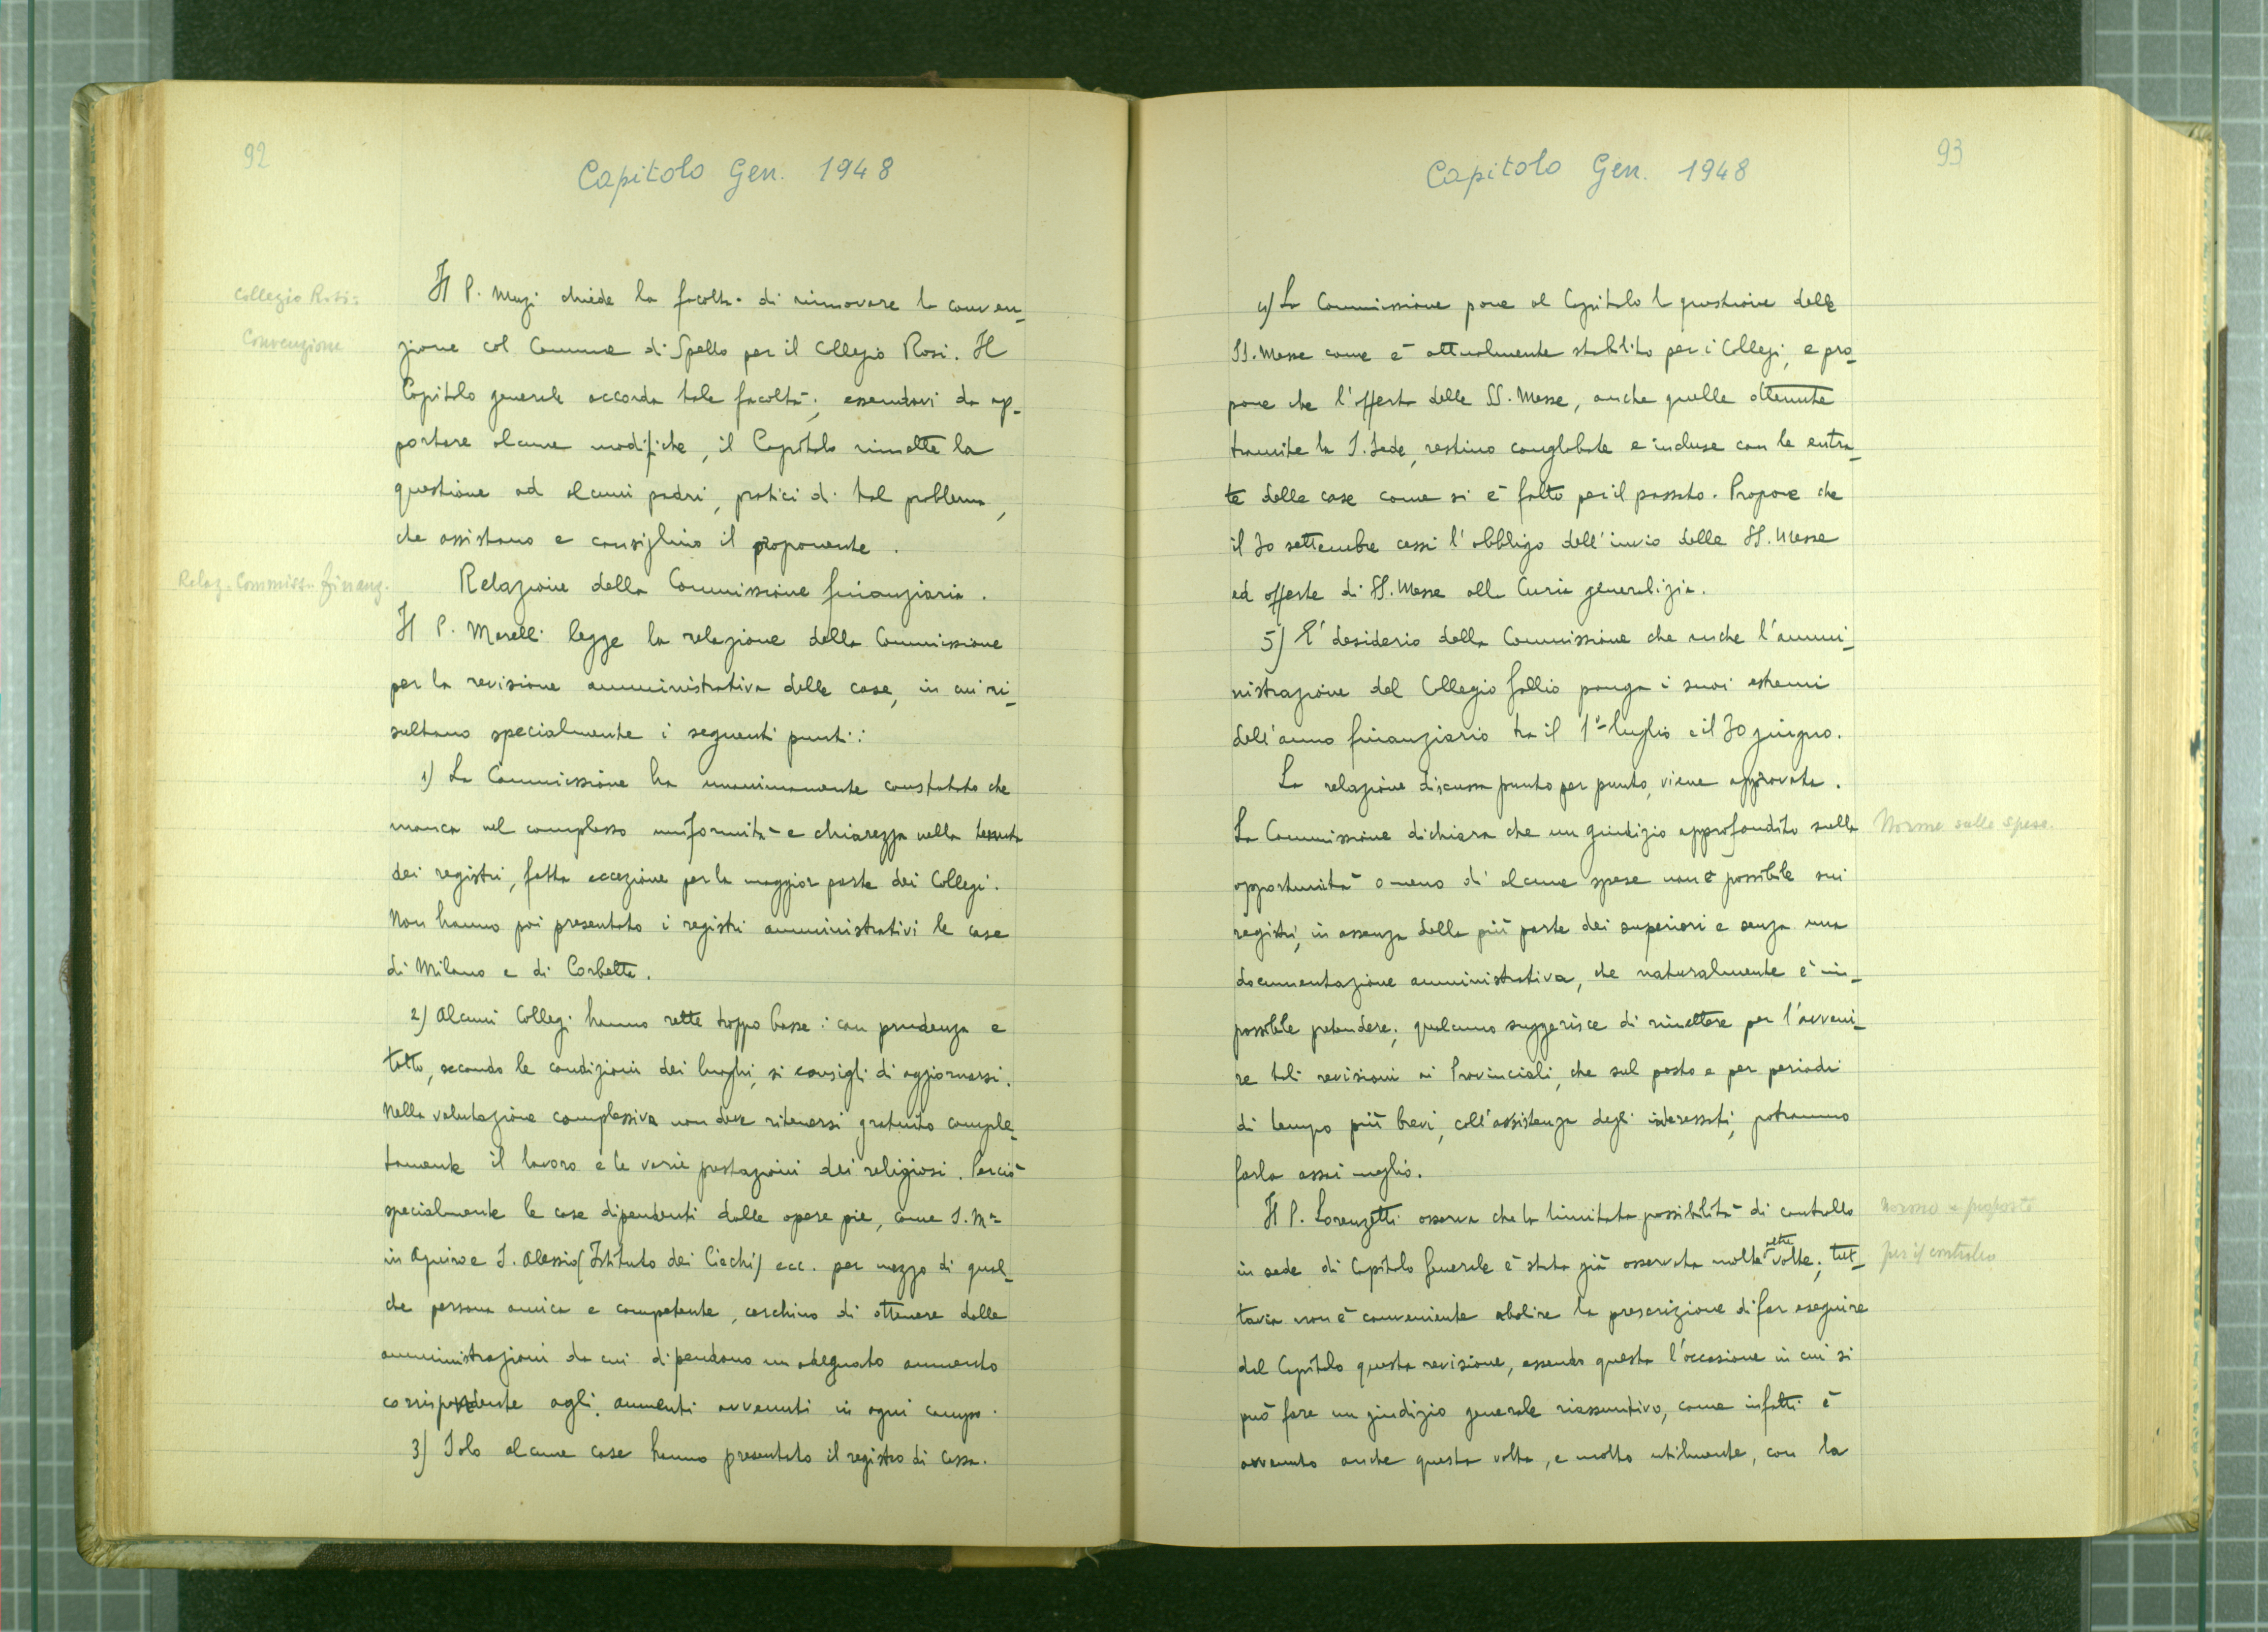 92
Capitolo Gen. 1948
Collegio Rosi:
Convenzione
Il P. Muzi chiede la facoltà di rinnovare la conven-
zione col Comune di Spello per il Collegio Rosi. Il
Capitolo generale accorda tale facoltà; essendovi da ap-
portare alcune modifiche, il Capitolo rimette la
questione ad alcuni padri, pratici di tal problema,
che assistano e consiglino il proponente.
Relaz. Commiss. finanz.
Relazione della Commissione finanziaria.
Il P. Marelli legge la relazione della Commissione
per la revisione amministrativa delle case, in cui ri-
sultano specialmente i seguenti punti:
1) La Commissione ha unanimamente constatato che
manca nel complesso uniformità e chiarezza nella tenuta
dei registri, fatta eccezione per la maggior parte dei Collegi.
Non hanno poi presentato i registri amministrativi le case
di Milano e di Corbetta.
2) Alcuni Collegi hanno rette troppo basse: con prudenza e
tatto, secondo le condizioni dei luoghi, si consigli di aggiornarsi.
Nella valutazione complessiva non deve ritenersi gratuito comple-
tamente il lavoro e le varie prestazioni dei religiosi. Perciò
specialmente le case dipendenti dalle opere pie, come S. Mª
in Aquiro e S. Alessio (Istituto dei Ciechi) ecc. per mezzo di qual-
che persona amica e competente, cerchino di ottenere dalle
amministrazioni da cui dipendono un adeguato aumento
corrispondente agli aumenti avvenuti in ogni campo.
3) Solo alcune case hanno presentato il registro di cassa.
93
Capitolo Gen. 1948
4) La Commissione pone al Capitolo la questione delle
SS. Messe come è attualmente stabilito per i Collegi, e pro-
pone che l'offerta delle SS. Messe, anche quelle ottenute
tramite la S. Sede, restino conglobate e incluse con le entra-
te delle case come si è fatto per il passato. Propone che
il 30 settembre cessi l'obbligo dell'invio delle SS. Messe
ed offerte di SS. Messe alla Curia generalizia.
5) E' desiderio della Commissione che anche l'ammi-
nistrazione del Collegio Gallio ponga i suoi estremi
dell'anno finanziario tra il 1° luglio e il 30 giugno.
La relazione discussa punto per punto, viene approvata.
La Commissione dichiara che un giudizio approfondito sulla
Norme sulle spese.
opportunità o meno di alcune spese non è possibile sui
registri, in assenza della più parte dei superiori e senza una
documentazione amministrativa, che naturalmente è im-
possibile pretendere; qualcuno suggerisce di rimettere per l'avveni-
re tali revisioni ai Provinciali, che sul posto e per periodi
di tempo più brevi, coll'assistenza degli interessati, potranno
farla assai meglio.
Il P. Lorenzetti osserva che la limitata possibilità di controllo
Norme e proposte
in sede di Capitolo Generale è stata già osservata molte altre volte; tut-
per il controllo
tavia non è conveniente abolire la prescrizione di far eseguire
dal Capitolo questa revisione, essendo questa l'occasione in cui si
può fare un giudizio generale riassuntivo, come infatti è
avvenuto anche questa volta, e molto utilmente, con la